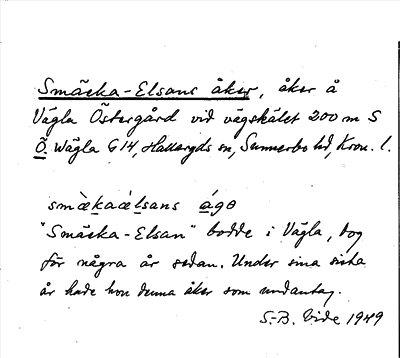 Smäcka-Elsans åker, åker å
Vägla Östergård vid vägskälet 200 m S
Ö. Wägla G 14, Hallaryds sn, Sunnerbo hd, Kron. l.
smὰ̀kaá̀lsans ágə
"Smäcka-Elsan" bodde i Vägla, dog
för några år sedan. Under sina sista
år hade hon denna åker som undantag.
S.-B. Vide 1949